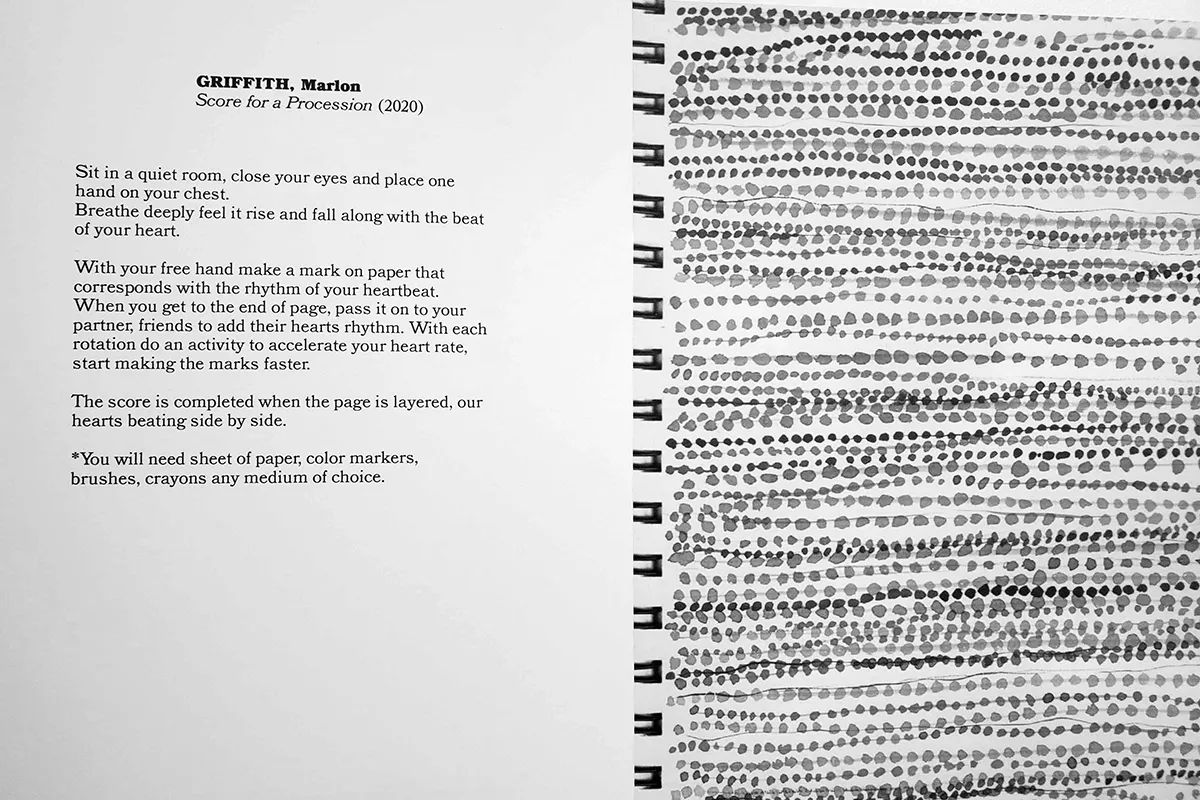 GRIFFITH, Marlon
Score for a Procession (2020)
Sit in a quiet room, close your eyes and place one
hand on your chest.
Breathe deeply feel it rise and fall along with the beat
of your heart.
With your free hand make a mark on paper that
corresponds with the rhythm of your heartbeat.
When you get to the end of page, pass it on to your
partner, friends to add their hearts rhythm. With each
rotation do an activity to accelerate your heart rate,
start making the marks faster.
The score is completed when the page is layered, our
hearts beating side by side.
*You will need sheet of paper, color markers,
brushes, crayons any medium of choice.